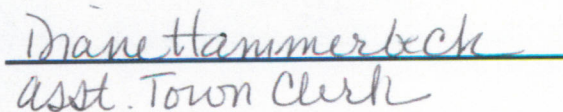 Diane Hammerbeck
asst. Town Clerk